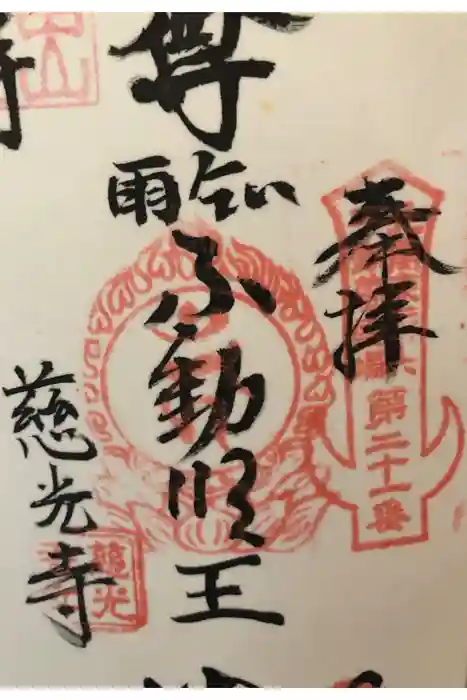 奉拝
第二十一番
尊
雨乞い
不動明王
慈光寺
慈光